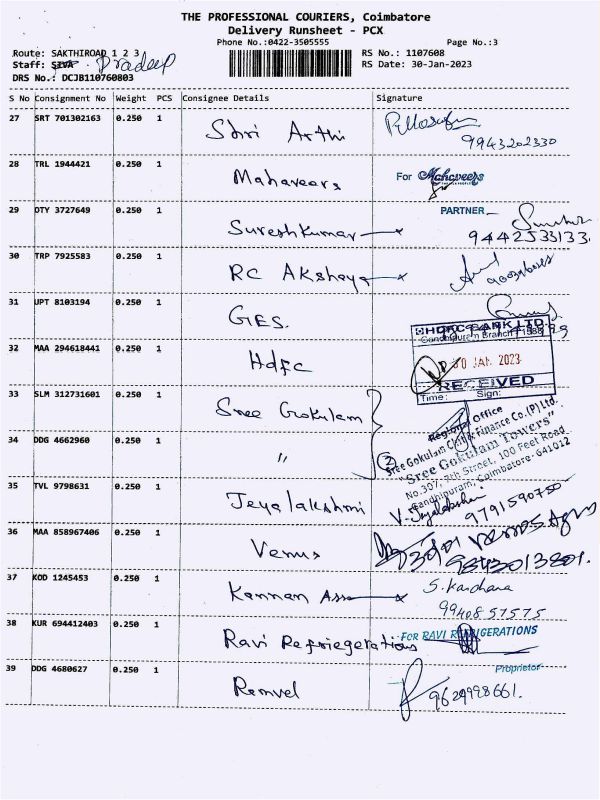 THE PROFESSIONAL COURIERS, Coimbatore
Delivery Runsheet - PCX
Phone No.:0422-3505555 Page No.:3
Route: SAKTHIROAD 1 2 3 RS No.: 1107608
Staff: SIVA . Pradeep RS Date: 30-Jan-2023
DRS No.: DCJB110760803
S No Consignment No Weight PCS Consignee Details Signature
27 SRT 701302163 0.250 1 Shri Arthi 9943202330
28 TRL 1944421 0.250 1 Mahaveers For Mahaveers
PARTNER
29 DTY 3727649 0.250 1 Sureshkumar 9442533133
30 TRP 7925583 0.250 1 RC Akshaya
31 UPT 8103194 0.250 1 GES.
HDFC BANK LTD
Gandhipuram Branch - 1588
32 MAA 294618441 0.250 1 Hdfc 30 JAN 2023
RECEIVED
Time: Sign:
33 SLM 312731601 0.250 1 Sree Gokulam
Regional Office
Sree Gokulam Chit & Finance Co.(P) Ltd.
34 DDG 4662960 0.250 1 〃 2 "Sree Gokulam Towers"
No.307, 7th Street, 100 Feet Road
Gandhipuram, Coimbatore-641012
35 TVL 9798631 0.250 1 Jeyalakshmi V. Jeyalakshmi 9791590750
36 MAA 858967406 0.250 1 Venus 9843013801.
37 KOD 1245453 0.250 1 Kannan Asso S. Kandhana
9940857575
38 KUR 694412403 0.250 1 Ravi Refriegerations FOR RAVI REFRIGERATIONS
Proprietor
39 DDG 4680627 0.250 1 Remvel 9629998661.